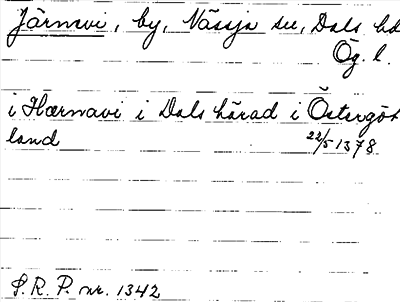 Järnevi, by, Vässja sn, Dals hd
Ög. l.
i Hærnavi i Dals härad i Östergöt
land 22/5 1378
S. R. P. nr. 1342